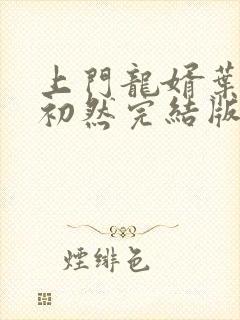 上門龍婿葉
初然完結版
煙緋色